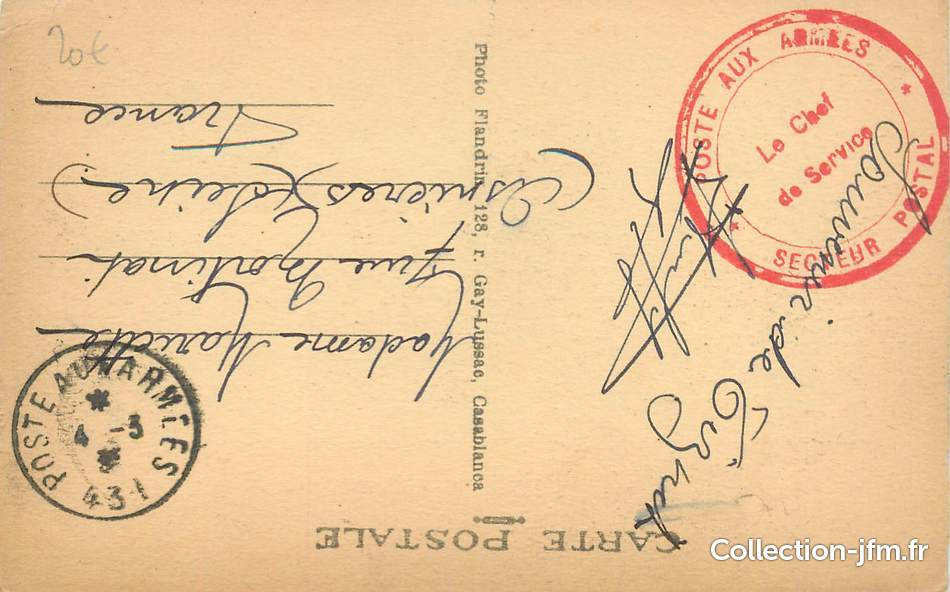 CARTE POSTALE
Souvenir de Tiznit
Madame Mariette
7 rue Mortinat
(Asnières) (Seine)
France
Photo Flandrin, 128, r. Gay-Lussac, Casablanca
POSTE AUX ARMEES
Le Chef
de Service
* SECTEUR POSTAL *
POSTE AUX ARMEES
*
4 -3
*
431
20€
Collection-jfm.fr